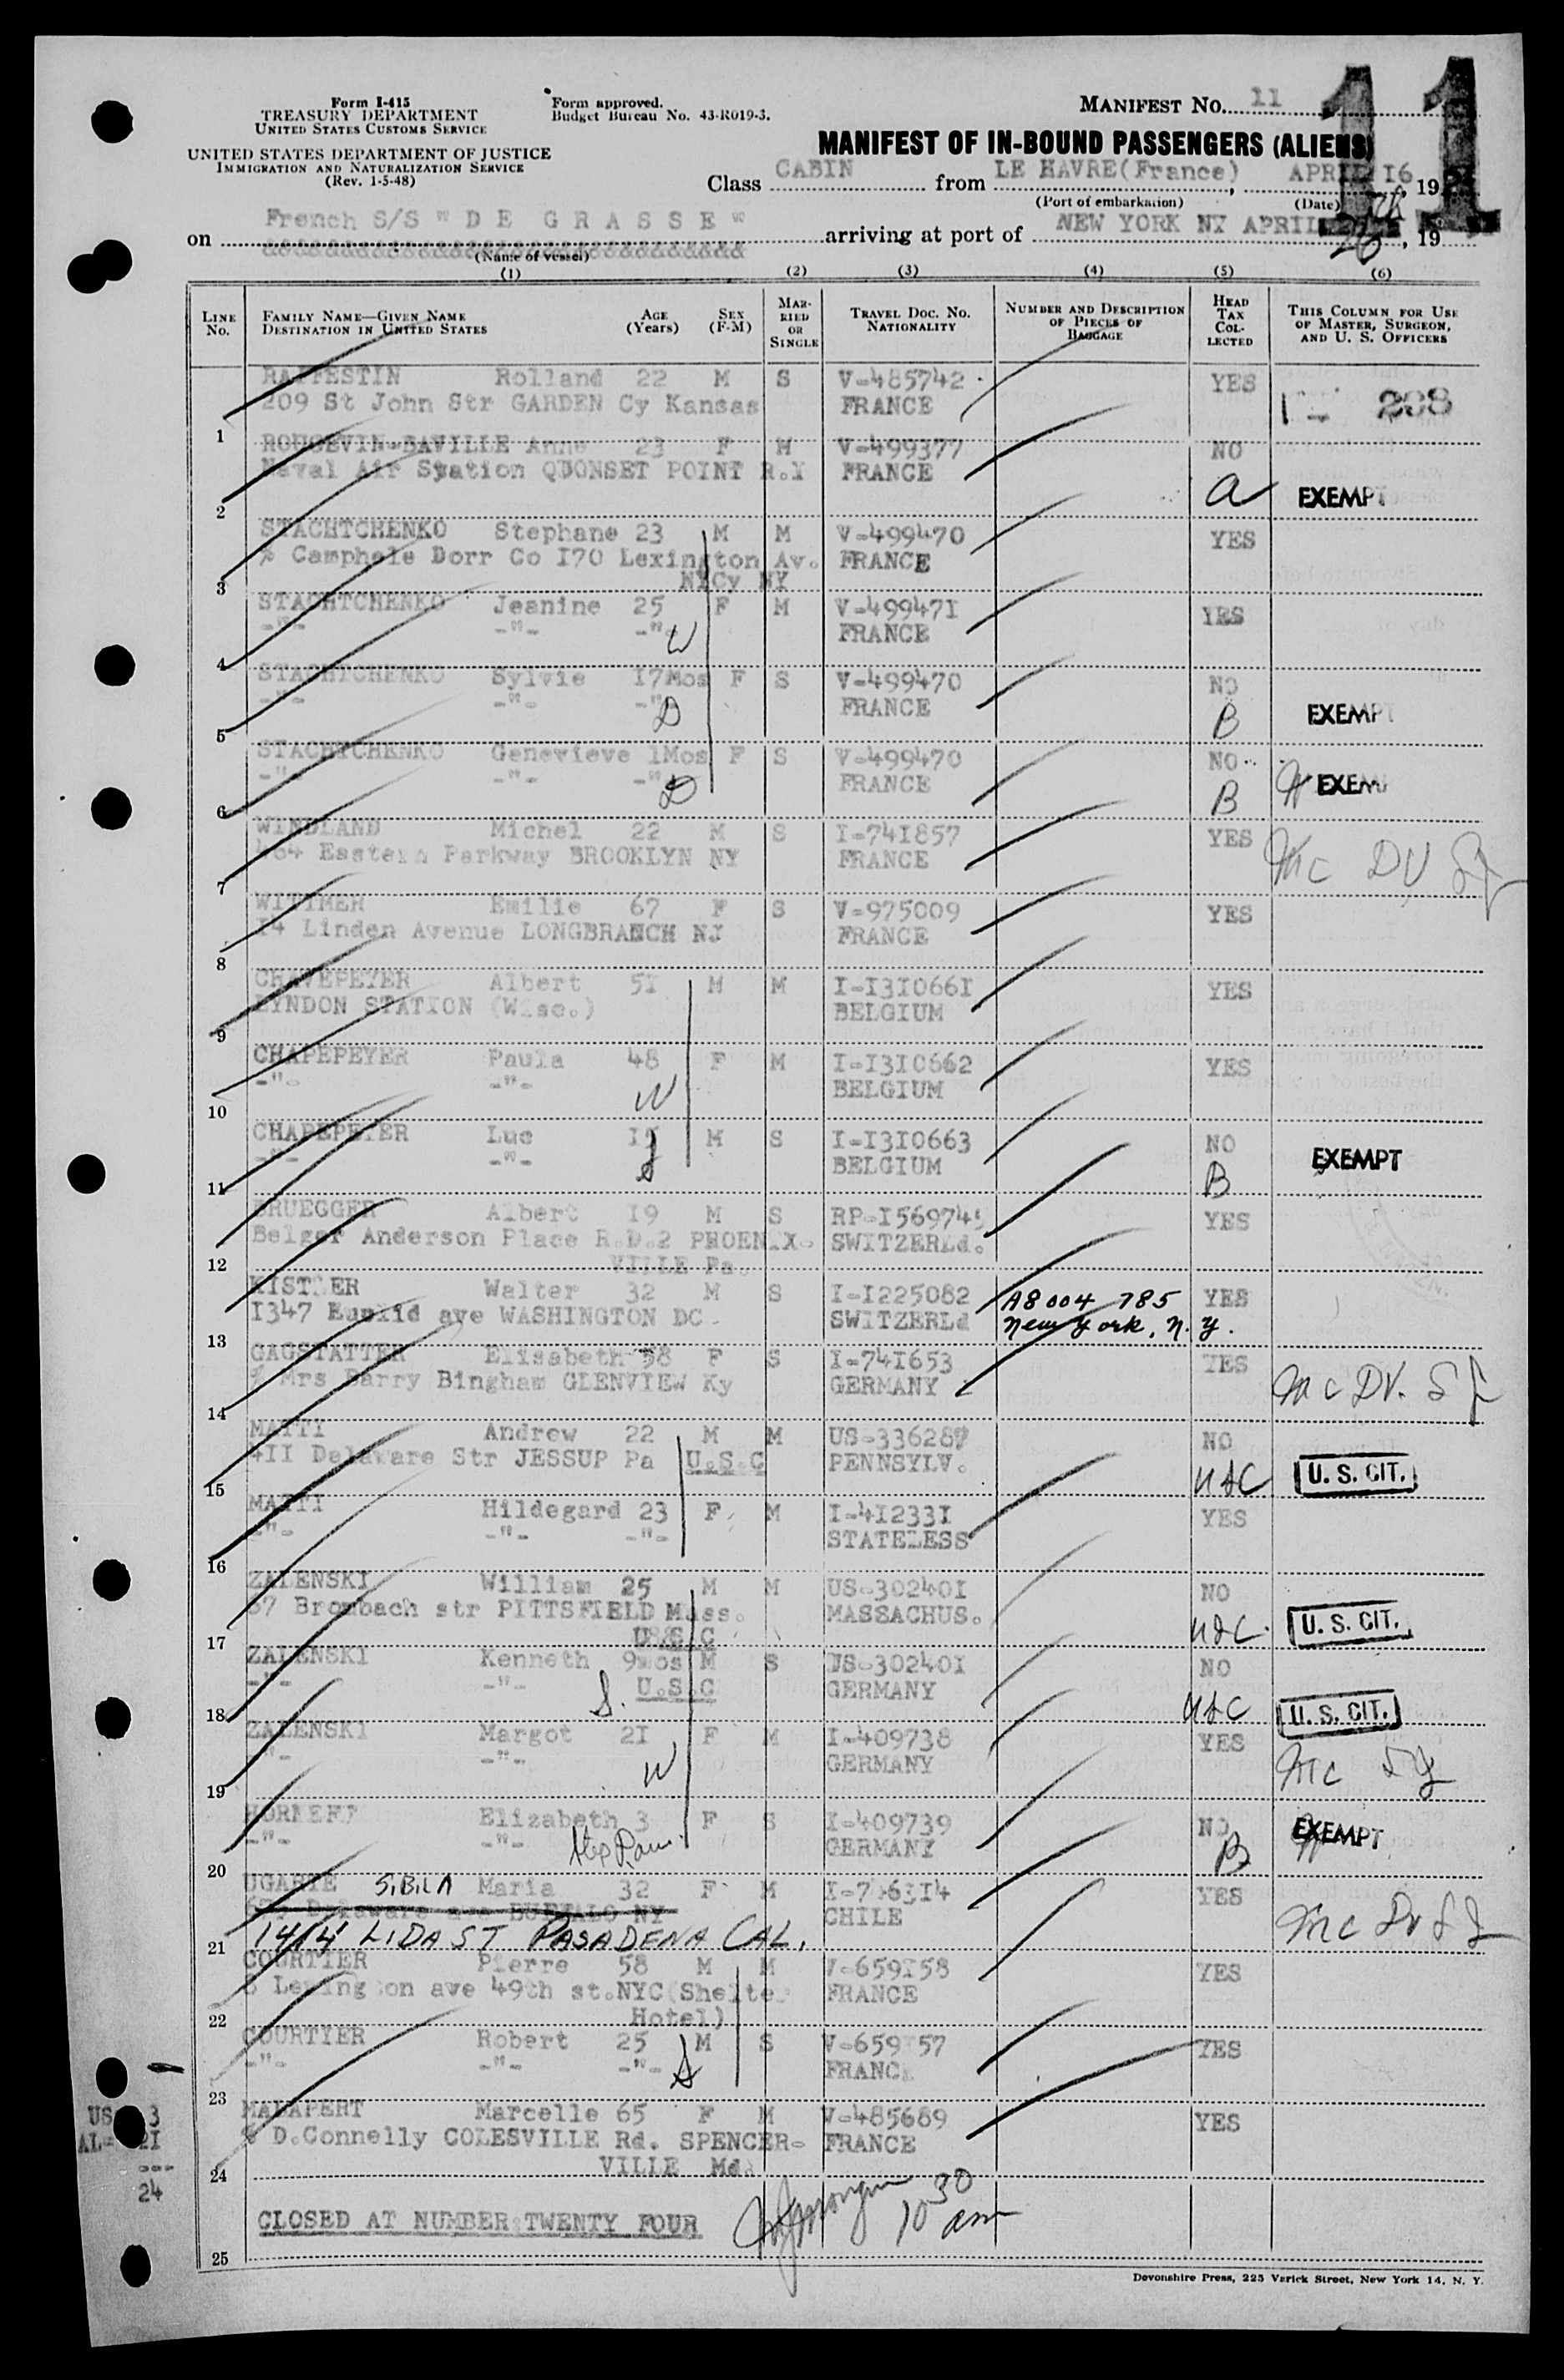 Form I-415
TREASURY DEPARTMENT
UNITED STATES CUSTOMS SERVICE
UNITED STATES DEPARTMENT OF JUSTICE
IMMIGRATION AND NATURALIZATION SERVICE
(Rev. 1-5-48)
Form approved.
Budget Bureau No. 43-R019-3.
MANIFEST NO. 11
11
MANIFEST OF IN-BOUND PASSENGERS (ALIENS)
Class CABIN from LE HAVRE(France), APRIL 16, 19
(Port of embarkation) (Date)
on French S/S " D E G R A S S E " arriving at port of NEW YORK NY APRIL 26, 19
(Name of vessel)
(1) (2) (3) (4) (5) (6)
LINE No. FAMILY NAME—GIVEN NAME DESTINATION IN UNITED STATES AGE (Years) SEX (F-M) MARRIED OR SINGLE TRAVEL DOC. NO. NATIONALITY NUMBER AND DESCRIPTION OF PIECES OF BAGGAGE HEAD TAX COLLECTED THIS COLUMN FOR USE OF MASTER, SURGEON, AND U. S. OFFICERS
RAFFESTIN Rolland 22 M S V-485742 YES
209 St John Str GARDEN Cy Kansas FRANCE 208
1
ROUGEVIN-BAVILLE Anne 23 F M V-499377 NO
Naval Air Syation QUONSET POINT R.I FRANCE a EXEMPT
2
STACHTCHENKO Stephane 23 M M V-499470 YES
% Camphele Dorr Co I70 Lexington Av. FRANCE
NYCy NY
3
STACHTCHENKO Jeanine 25 F M V-499471 YES
-"- -"- -"- W FRANCE
4
STACHTCHENKO Sylvie 17Mos F S V-499470 NO
-"- -"- -"- D FRANCE B EXEMPT
5
STACHTCHENKO Genevieve 1Mos F S V-499470 NO
-"- -"- -"- D FRANCE B EXEM
6
WINDLAND Michel 22 M S I-741857 YES
464 Eastern Parkway BROOKLYN NY FRANCE Mc DV
7
WITTMER Emilie 67 F S V-975009 YES
14 Linden Avenue LONGBRANCH NJ FRANCE
8
CHAVEPEYER Albert 51 M M I-I310661 YES
LYNDON STATION (Wisc.) BELGIUM
9
CHAPEPEYER Paula 48 F M I-I310662 YES
-"- -"- W BELGIUM
10
CHAPEPEYER Luc 15 M S I-I310663 NO
-"- -"- S BELGIUM B EXEMPT
11
BRUEGGER Albert 19 M S RP-I569745 YES
Belger Anderson Place R.D.2 PHOENIX- SWITZERLd.
VILLE Pa.
12
KISTLER Walter 32 M S I-I225082 A8004 785 YES
I347 Euclid ave WASHINGTON DC. SWITZERLd New York, N.Y.
13
GAGSTATTER Elisabeth 58 F S I-741653 YES
% Mrs Barry Bingham GLENVIEW Ky GERMANY Mc DV.
14
MATTI Andrew 22 M M US-336287 NO
411 Delaware Str JESSUP Pa U.S.C PENNSYLV. USC U. S. CIT.
15
MATTI Hildegard 23 F M I-412331 YES
-"- -"- -"- STATELESS
16
ZALENSKI William 25 M M US-302401 NO
37 Brombach str PITTSFIELD Mass. MASSACHUS.
U.S.C USC U. S. CIT.
17
ZALENSKI Kenneth 9mos M S US-302401 NO
-"- -"- S. U.S.C GERMANY USC U. S. CIT.
18
ZALENSKI Margot 21 F M I-409738 YES
-"- -"- W GERMANY Mc
19
Elizabeth 3 F S I-409739 NO
-"- -"- Step Dau. GERMANY B EXEMPT
20
UGARTE SIBILA Maria 32 F M I-746314 YES
Delaware ave BUFFALO NY CHILE Mc DV
1414 LIDA ST PASADENA CAL.
21
COURTIER Pierre 58 M M V-659158 YES
% Lexington ave 49th st.NYC(Shelte FRANCE
Hotel)
22
COURTIER Robert 25 M S V-659157 YES
-"- -"- -"- S FRANCE
23
MALAPERT Marcelle 65 F M V-485689 YES
% D.Connelly COLESVILLE Rd. SPENCER- FRANCE
VILLE Md.
24
US 3
AL= 21
---
24
CLOSED AT NUMBER TWENTY FOUR 10 30 am
25
Devonshire Press, 225 Varick Street, New York 14, N. Y.